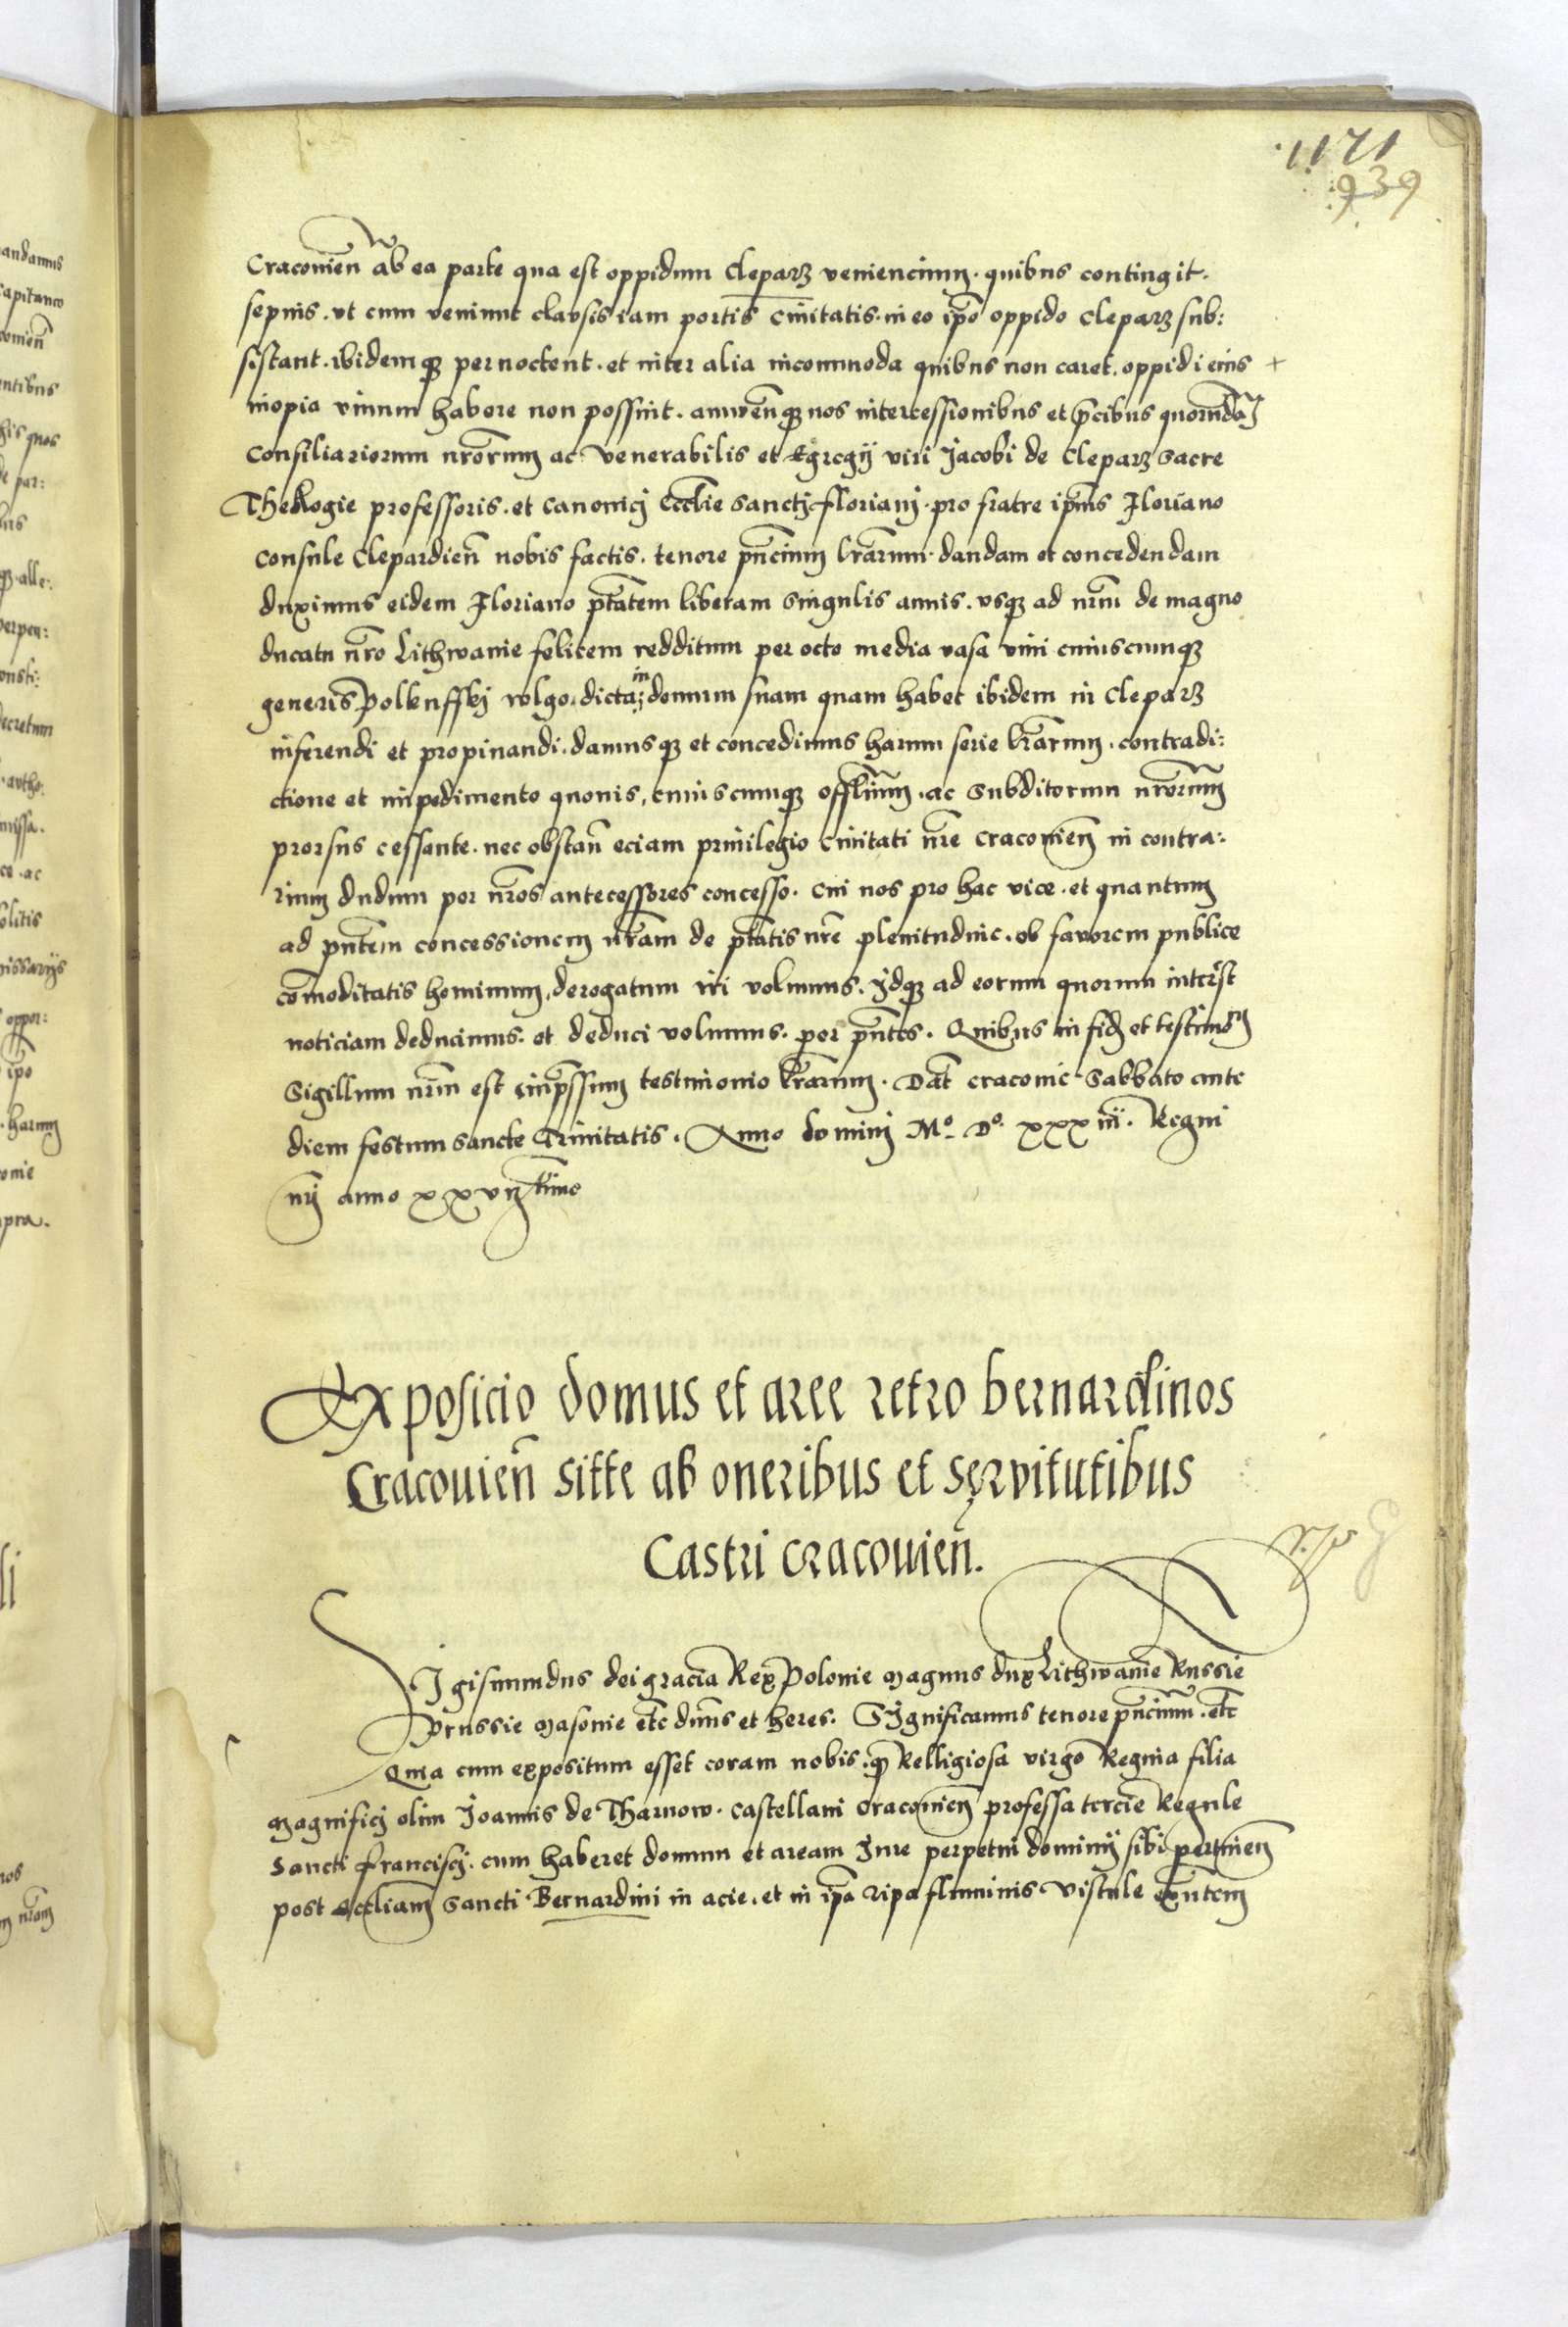 1171
939
Cracouien̄ ab ea parte qua est oppidum Cleparz veniencium. quibus contingit.
sepius. vt cum veniunt clausis iam portis Ciuitatis. in eo ip̄o oppido Cleparz sub:
sistant. ibidemqʒ pernoctent. et inter alia incommoda quibus non caret. oppidi eius +
inopia vinum habere non possint. annuen̄qʒ nos intercessionibus et p̄cibus quorundā
Consiliariorum nr̄orum ac Venerabilis et Egregij viri Jacobi de Cleparz Sacre
Theologie professoris. et Canonicj Eccl̄ie Sanctj Florianj. pro fratre ip̄ius Floriano
Consule Clepardien̄ nobis factis. tenore pn̄cium lr̄arum. dandam et concedendam
duximus eidem Floriano ptātem liberam Singulis annis. vsqʒ ad nr̄m de magno
ducatu nr̄o Lithwanie felicem redditum per octo media vasa vini cuiuscumqʒ
generis Polkuffkj wlgo. dicta; in domum suam quam habet ibidem in Cleparz
inferendi et propinandi. damusqʒ et concedimus harum serie lr̄arum. contradi:
ctione et impedimento quouis, cuiuscumqʒ offlium̄. ac Subditorum nr̄orum
prorsus cessante. nec obstan̄ eciam priuilegio Ciuitati nr̄e Cracouien̄ in contra:
rium dudum per nr̄os antecessores concesso. Cui nos pro hac vice. et quantum
ad pn̄tem concessionem nr̄am de ptātis nr̄e plenitudine. ob fauorem publice
cōmoditatis hominum, derogatum iri volumus. Jdqʒ ad eorum quorum interest
noticiam deducimus. et deduci volumus. per pn̄tes. Quibus in fidē et testimōn
Sigillum nr̄m est imp̄ssum testimonio lr̄arum. Dat̄ Cracouie Sabbato ante
diem festum Sancte Trinitatis. Anno dominj Mº. Dº. xxxiij. Regni
nr̄j anno xxvijtimo
Exposicio domus et aree retro bernardinos
Cracouien̄ sitte ab oneribus et sęrvitutibus
Castri cracouien̄.
SJgismundus dei gracia Rex Polonie Magnus dux Lithwanie Russie
Prussie Masouie etc̄ dn̄us et heres. SJgnificamus tenore pn̄cium. etc̄
Quia cum expositum esset coram nobis. qʒ Relligiosa virgo Regina filia
Magnificj olim Joannis de Tharnow. Castellani Cracouien̄ professa tercie Regule
Sancti Franciscj. cum haberet domum et aream Jure perpetui dominij sibi pertinen̄
post Eccl̄iam Sancti Bernardini in acie. et in ip̄a ripa fluminis Vistule exn̄tem